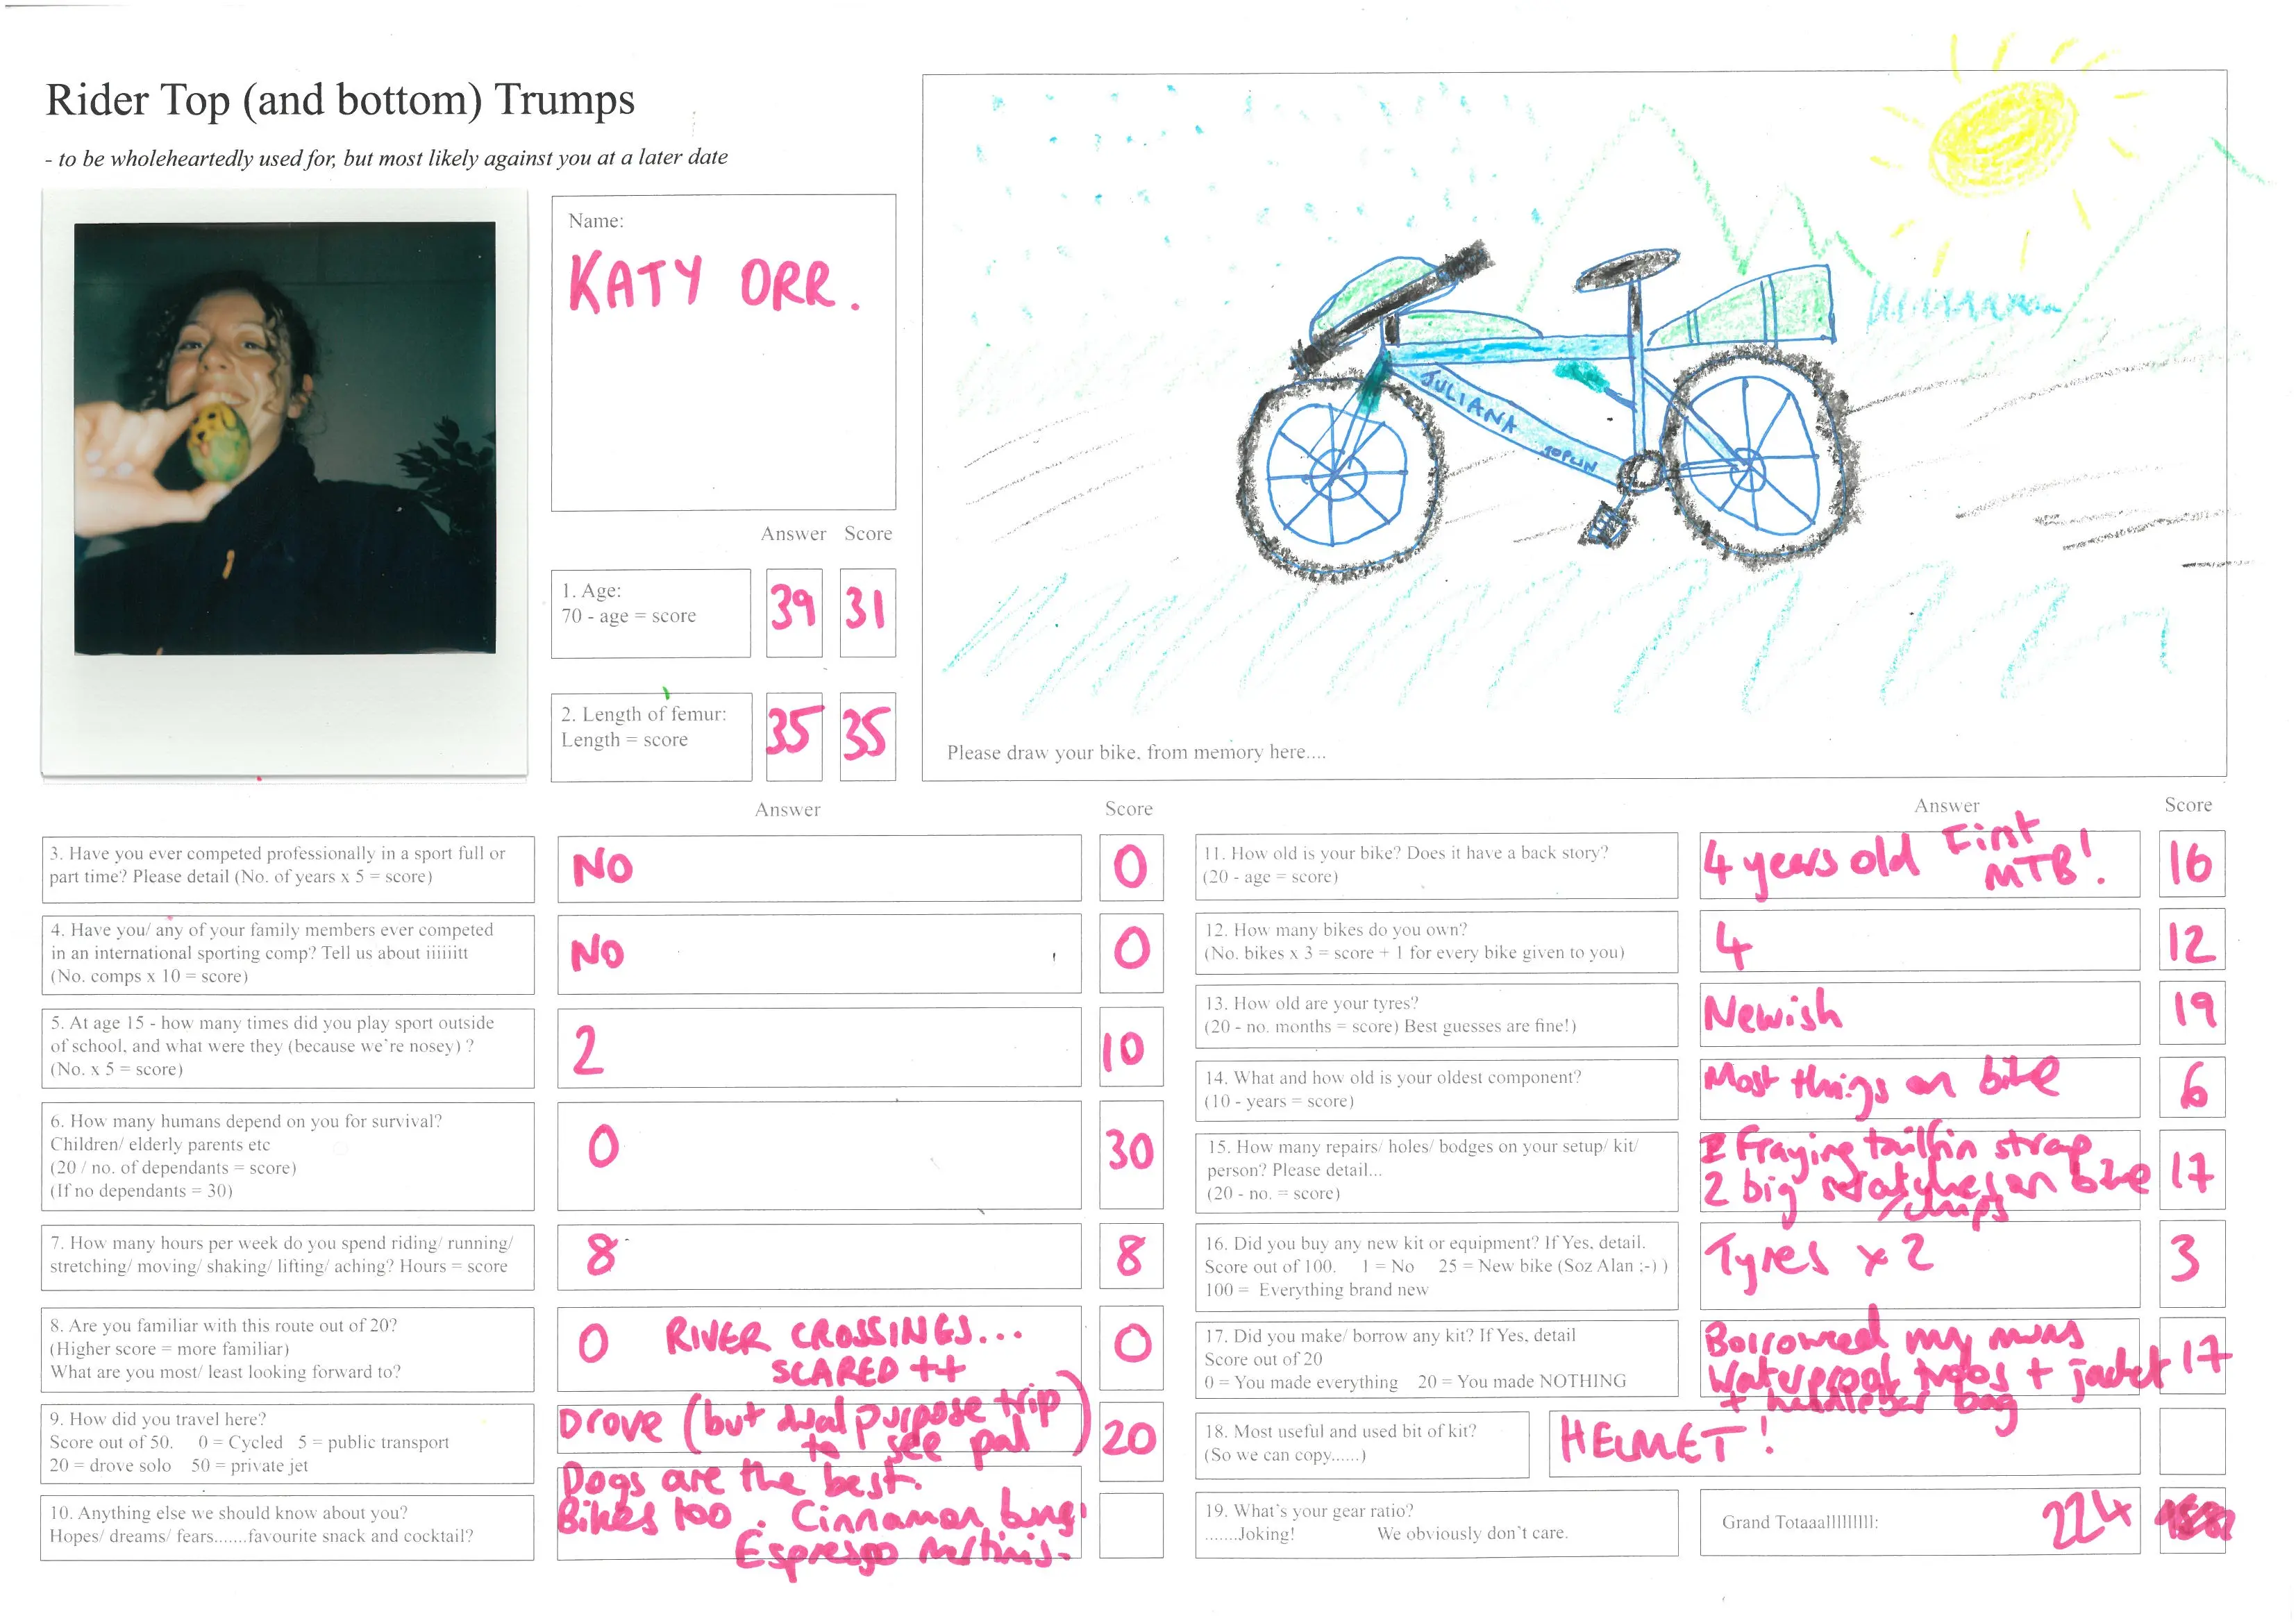 Rider Top (and bottom) Trumps
- to be wholeheartedly used for, but most likely against you at a later date
Name:
KATY ORR.
Answer Score
1. Age:
70 - age = score
39 31
2. Length of femur:
Length = score
35 35
JULIANA
JOPLIN
Please draw your bike, from memory here....
Answer Score
3. Have you ever competed professionally in a sport full or
part time? Please detail (No. of years x 5 = score)
NO 0
4. Have you/ any of your family members ever competed
in an international sporting comp? Tell us about iiiiiitt
(No. comps x 10 = score)
NO 0
5. At age 15 - how many times did you play sport outside
of school, and what were they (because we're nosey) ?
(No. x 5 = score)
2 10
6. How many humans depend on you for survival?
Children/ elderly parents etc
(20 / no. of dependants = score)
(If no dependants = 30)
0 30
7. How many hours per week do you spend riding/ running/
stretching/ moving/ shaking/ lifting/ aching? Hours = score
8 8
8. Are you familiar with this route out of 20?
(Higher score = more familiar)
What are you most/ least looking forward to?
0 RIVER CROSSINGS...
SCARED ++
0
9. How did you travel here?
Score out of 50. 0 = Cycled 5 = public transport
20 = drove solo 50 = private jet
Drove (but dual purpose trip
to see pal)
20
10. Anything else we should know about you?
Hopes/ dreams/ fears.......favourite snack and cocktail?
Dogs are the best.
Bikes too. Cinnamon buns.
Espresso martinis.
Answer Score
11. How old is your bike? Does it have a back story?
(20 - age = score)
4 years old First
MTB!
16
12. How many bikes do you own?
(No. bikes x 3 = score + 1 for every bike given to you)
4 12
13. How old are your tyres?
(20 - no. months = score) Best guesses are fine!)
Newish 19
14. What and how old is your oldest component?
(10 - years = score)
Most things on bike 6
15. How many repairs/ holes/ bodges on your setup/ kit/
person? Please detail...
(20 - no. = score)
Fraying tailfin strap
2 big scratches on bike
/chips
17
16. Did you buy any new kit or equipment? If Yes, detail.
Score out of 100. 1 = No 25 = New bike (Soz Alan ;-) )
100 = Everything brand new
Tyres x 2 3
17. Did you make/ borrow any kit? If Yes, detail
Score out of 20
0 = You made everything 20 = You made NOTHING
Borrowed my mums
Waterproof trobs + jacket
+ handlebar bag
17
18. Most useful and used bit of kit?
(So we can copy......)
HELMET!
19. What's your gear ratio?
.......Joking! We obviously don't care.
Grand Totaaallllllllll:
224